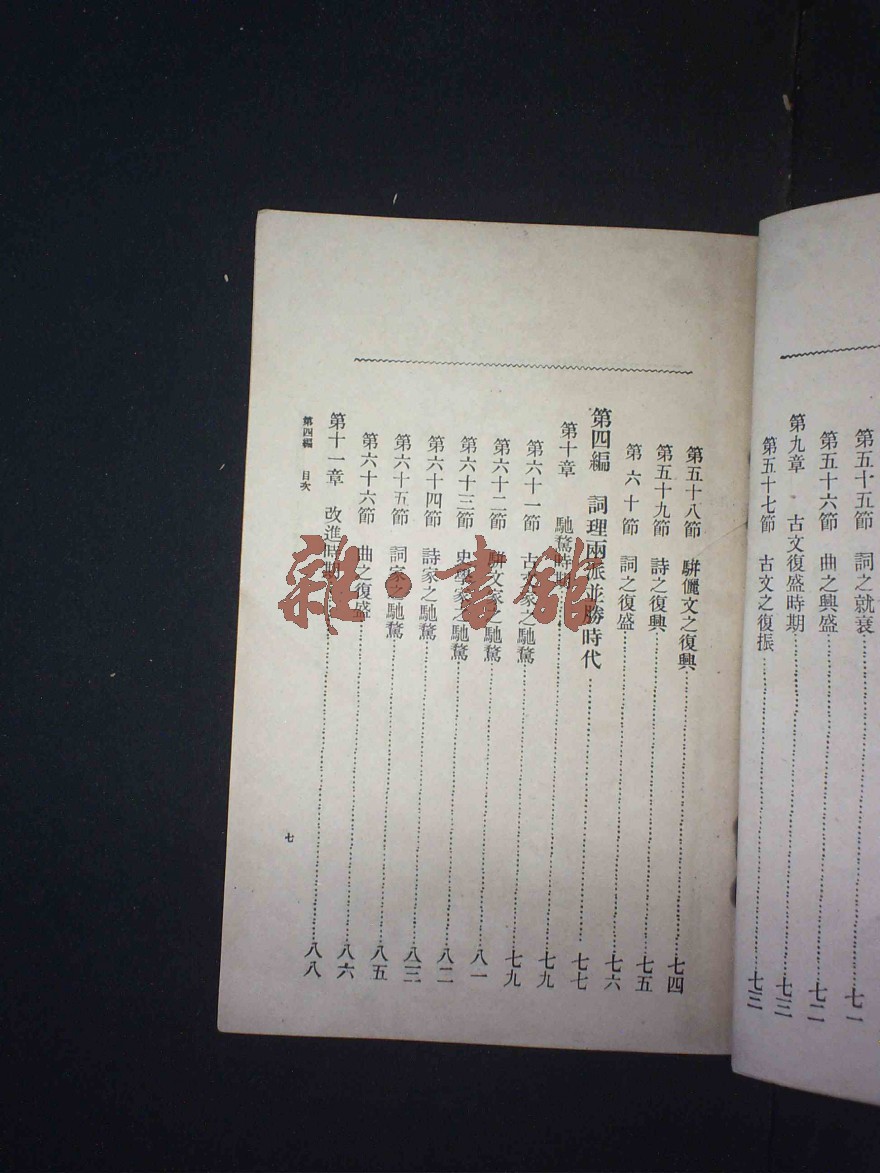 第五十五節 詞之就衰 七一
第五十六節 曲之興盛 七二
第九章 古文復盛時期 七三
第五十七節 古文之復振 七三
第五十八節 駢儷文之復興 七四
第五十九節 詩之復興 七五
第六十節 詞之復盛 七六
第四編 詞理兩派並勝時代 七七
第十章 馳騖時期 七九
第六十一節 古文家之馳騖 七九
第六十二節 駢文家之馳騖 八一
第六十三節 史學家之馳騖 八二
第六十四節 詩家之馳騖 八三
第六十五節 詞家之馳騖 八五
第六十六節 曲之復盛 八六
第十一章 改進時期 八八
第四編 目次 七
雜·書館